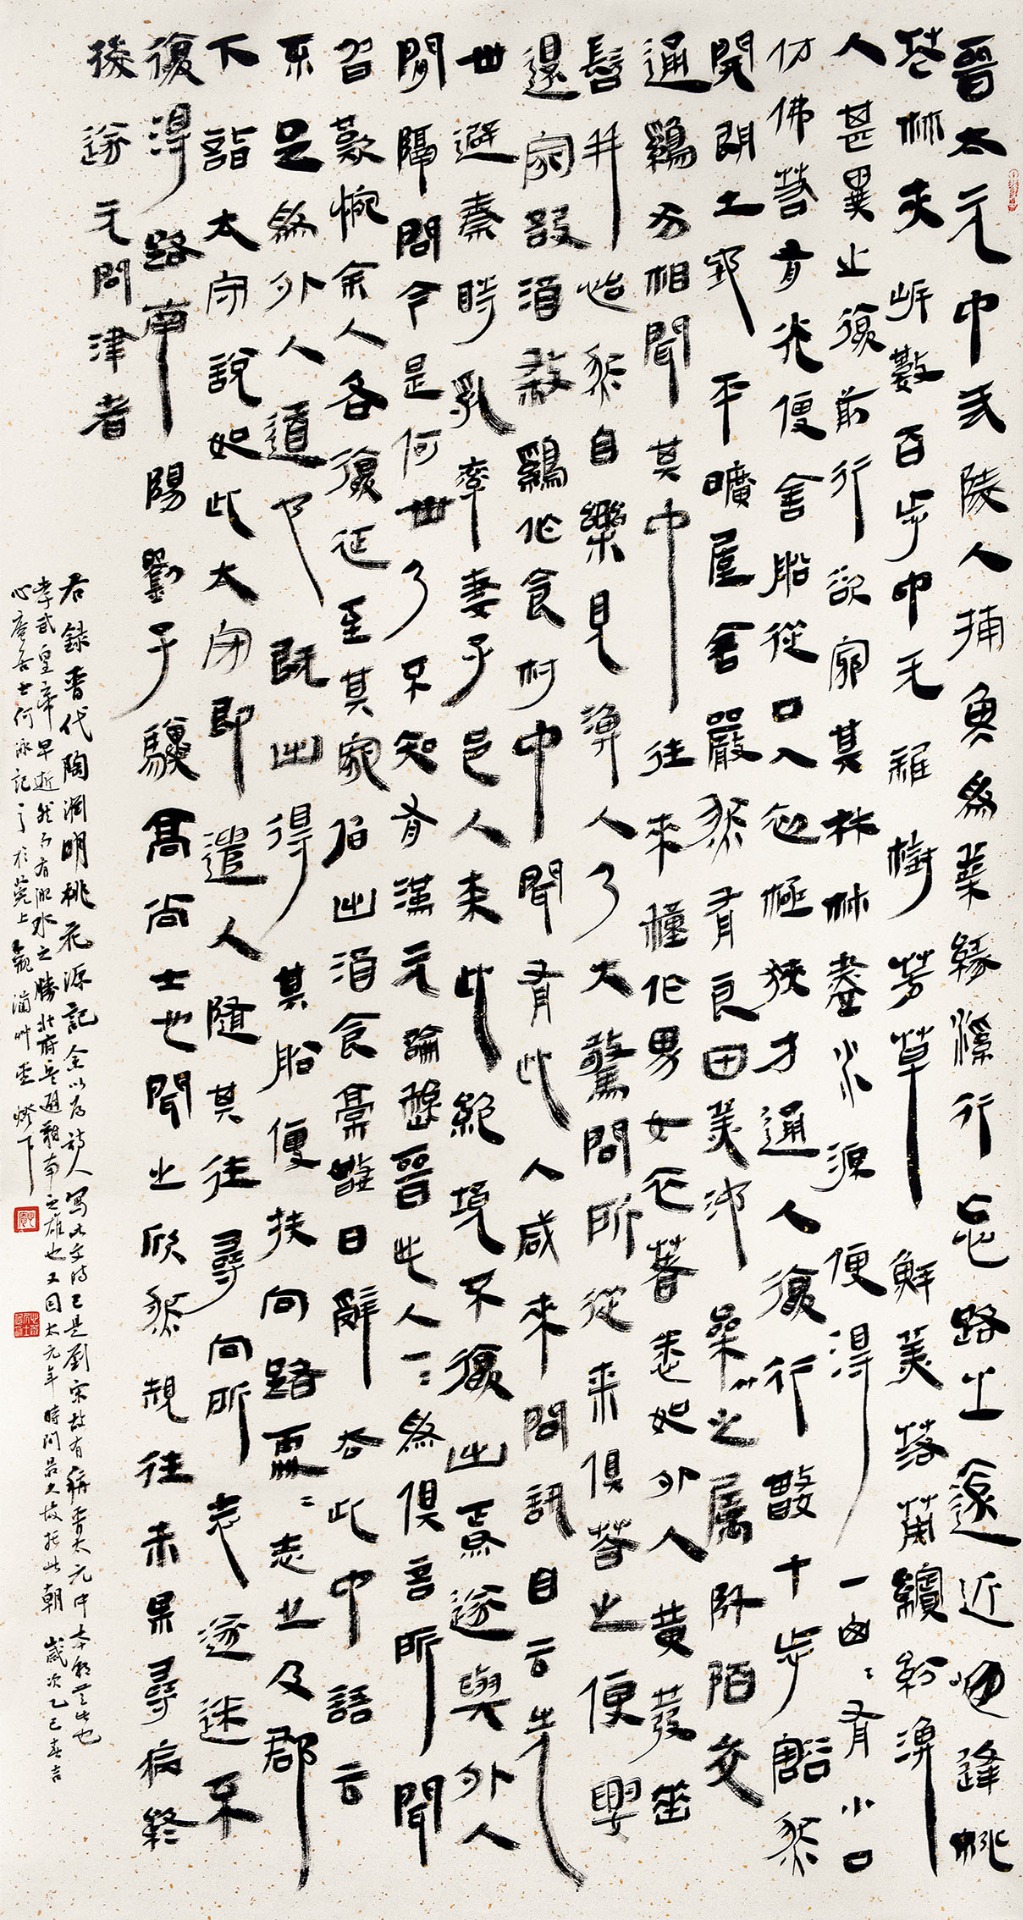 晉太元中武陵人捕魚為業緣溪行忘路之遠近忽逢桃
花林夾岸數百步中无雜樹芳草鮮美落英繽紛漁
人甚異之復前行欲窮其林林盡水源便得一山〻有小口
仿佛若有光便舍船從口入初極狹才通人復行數十步豁然
開朗土地平曠屋舍嚴然有良田美池桑竹之屬阡陌交
通雞犬相聞其中往來種作男女衣著悉如外人黃髮垂
髫并怡然自樂見漁人乃大驚問所從來俱答之便要
還家設酒殺雞作食村中聞有此人咸來問訊自云先
世避秦時亂率妻子邑人來此絕境不復出焉遂與外人
間隔問今是何世乃不知有漢无論魏晉此人一〻為俱言所聞
皆歎惋余人各復延至其家皆出酒食停數日辭去此中語云
不足為外人道也既出得其船便扶向路處〻志之及郡
下詣太守說如此太守即遣人隨其往尋向所志遂迷不
復得路南陽劉子驥高尚士也聞之欣然親往未果尋病終
後遂无問津者
右錄晉代陶淵明桃花源記余以為詩人寫此文時已是劉宋故有稱晉太元中本朝也
孝武皇帝早逝有淝水之勝北府兵南之雄也又因太元年時間最久故於此朝 歲次乙巳春吉
心庵居士何冰記之於莞上 艸堂燈下